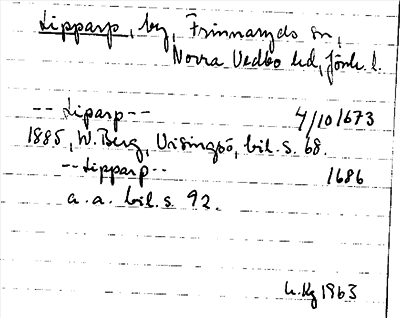 Lipparp, by, Frinnaryds sn,
Norra Vedbo hd, Jönk. l.
-- Liparp -- 4/10 1673
1885, W. Berg, Visingsö, bil. s. 68.
-- Lipparp -- 1686
a. a. bil. s. 92.
1963